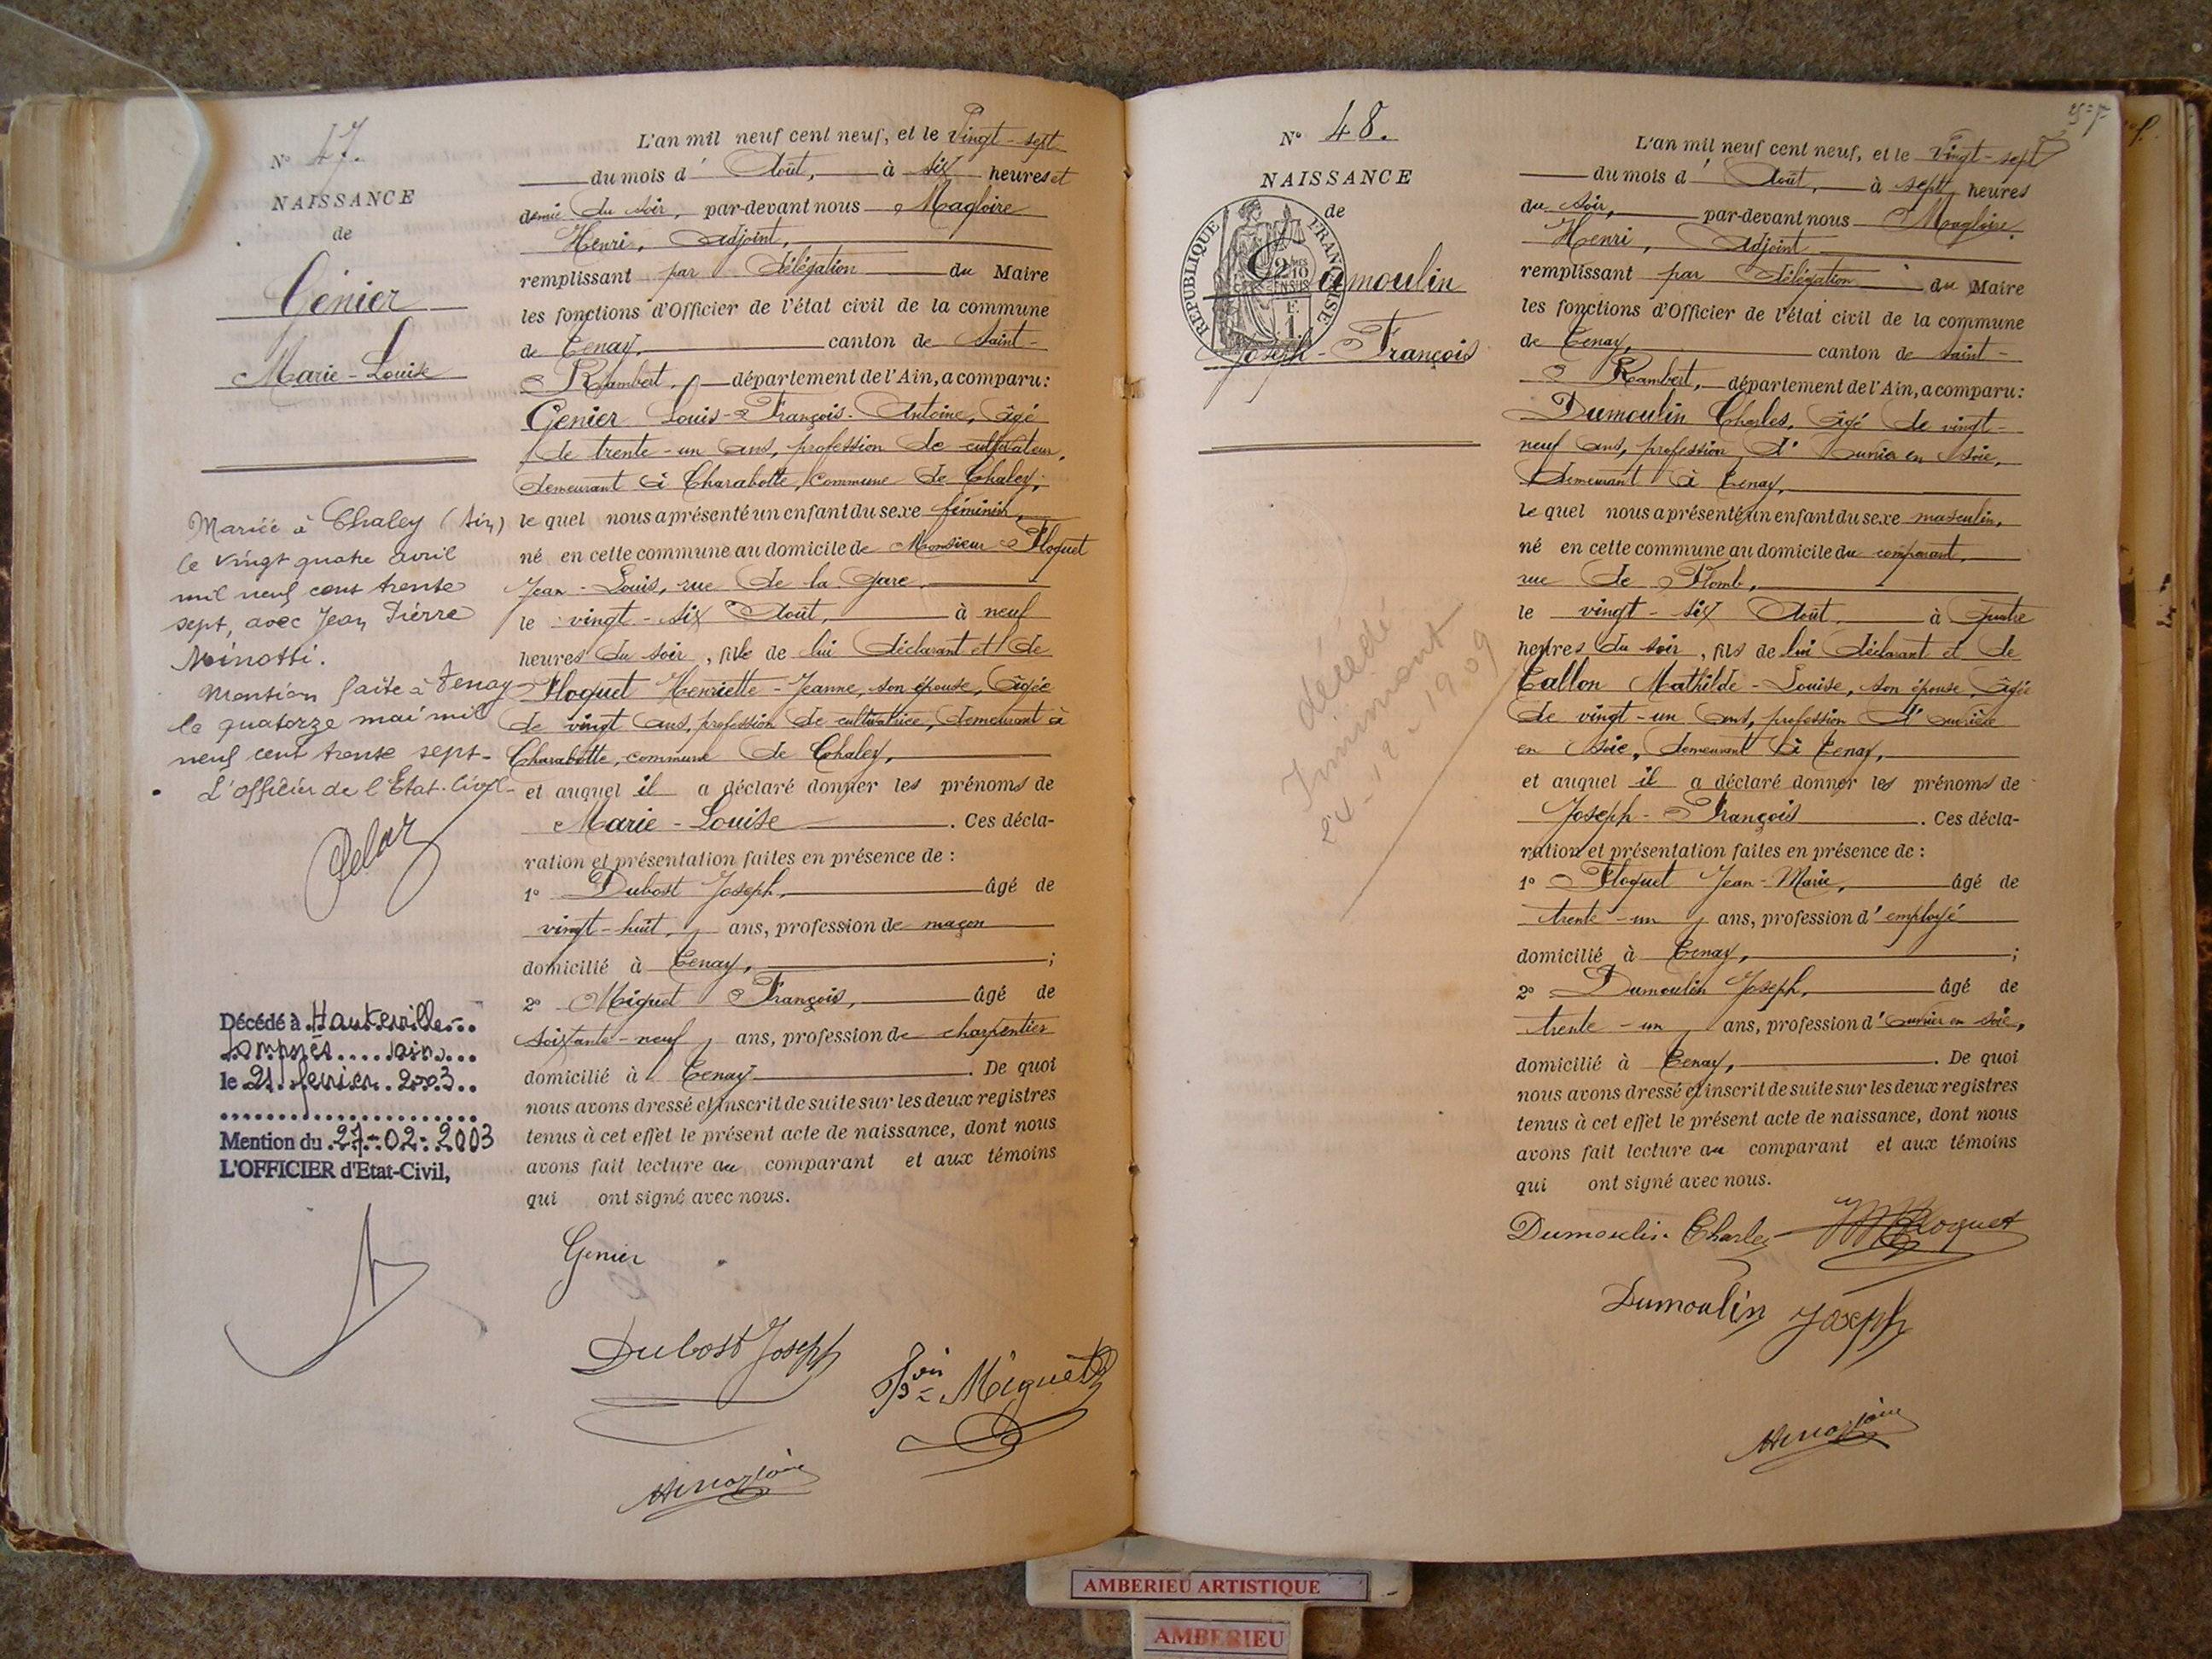 N° 47.
NAISSANCE
de
Genier
Marie-Louise
Mariée à Chaley (Ain)
le vingt quatre avril
mil neuf cent trente
sept, avec Jean Pierre
Minotti.
Mention faite à Tenay
le quatorze mai mil
neuf cent trente sept-
L'officier de l'Etat-Civil-
Décédé à Hauteville-
Lompnes.... Ain...
le 21 fevrier. 2003..
Mention du 27-02-2003
L'OFFICIER d'Etat-Civil,
L'an mil neuf cent neuf, et le Vingt-sept
du mois d' Août, à six heures et
demie du soir, par-devant nous Magloire
Henri, Adjoint,
remplissant par délégation du Maire
les fonctions d'Officier de l'état civil de la commune
de Tenay, canton de Saint-
Rambert, département de l'Ain, a comparu:
Genier Louis-François-Antoine, âgé
de trente-un ans, profession de cultivateur,
demeurant à Charabotte, commune de Chaley;
le quel nous a présenté un enfant du sexe féminin,
né en cette commune au domicile de Monsieur Floquet
Jean-Louis, rue de la Gare,
le vingt-six Août, à neuf
heures du soir, fille de lui déclarant et de
Floquet Henriette-Jeanne, son épouse, âgée
de vingt ans, profession de cultivatrice, demeurant à
Charabotte, commune de Chaley,
et auquel il a déclaré donner les prénoms de
Marie-Louise. Ces décla-
ration et présentation faites en présence de :
1° Dubost Joseph, âgé de
vingt-huit, ans, profession de maçon
domicilié à Tenay, ;
2° Miguet François, âgé de
soixante-neuf ans, profession de charpentier
domicilié à Tenay. De quoi
nous avons dressé et inscrit de suite sur les deux registres
tenus à cet effet le présent acte de naissance, dont nous
avons fait lecture au comparant et aux témoins
qui ont signé avec nous.
Genier
Dubost Joseph
Miguet
N° 48.
NAISSANCE
de
REPUBLIQUE FRANÇAISE
Dumoulin
Joseph-François
décédé
24-12-1909
L'an mil neuf cent neuf, et le Vingt-sept
du mois d' Août, à sept heures
du soir, par-devant nous Magloire
Henri, Adjoint
remplissant par délégation du Maire
les fonctions d'Officier de l'état civil de la commune
de Tenay, canton de Saint-
Rambert, département de l'Ain, a comparu:
Dumoulin Charles, âgé de vingt-
neuf ans, profession d' ouvrier en soie,
demeurant à Tenay,
le quel nous a présenté un enfant du sexe masculin,
né en cette commune au domicile du comparant,
rue de Plomb,
le vingt-six Août, à quatre
heures du soir, fils de lui déclarant et de
Tallon Mathilde-Louise, son épouse, âgée
de vingt-un ans, profession d' ouvrière
en soie, demeurant à Tenay,
et auquel il a déclaré donner les prénoms de
Joseph-François. Ces décla-
ration et présentation faites en présence de :
1° Floquet Jean-Marie, âgé de
trente-un ans, profession d' employé
domicilié à Tenay, ;
2° Dumoulin Joseph, âgé de
trente-un ans, profession d' ouvrier en soie,
domicilié à Tenay, . De quoi
nous avons dressé et inscrit de suite sur les deux registres
tenus à cet effet le présent acte de naissance, dont nous
avons fait lecture au comparant et aux témoins
qui ont signé avec nous.
Dumoulin Charles Floquet
Dumoulin Joseph
AMBERIEU ARTISTIQUE
AMBERIEU